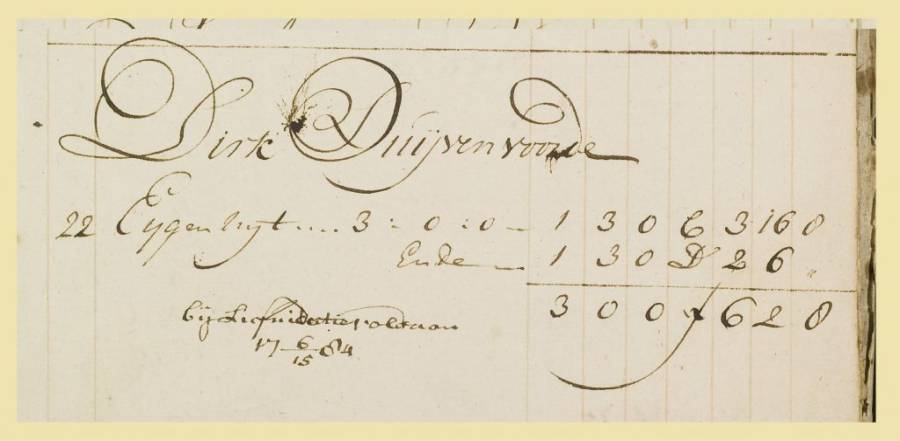 Dirk Duijvenvoorde
22 Eijgen huijt .... 3 : 0 : 0 — 1 3 0 C 3 16 8
Ende — 1 3 0 D 2 6 "
3 0 0 f 6 2 8
bij Liquidatie voldaan
17 6/15 84